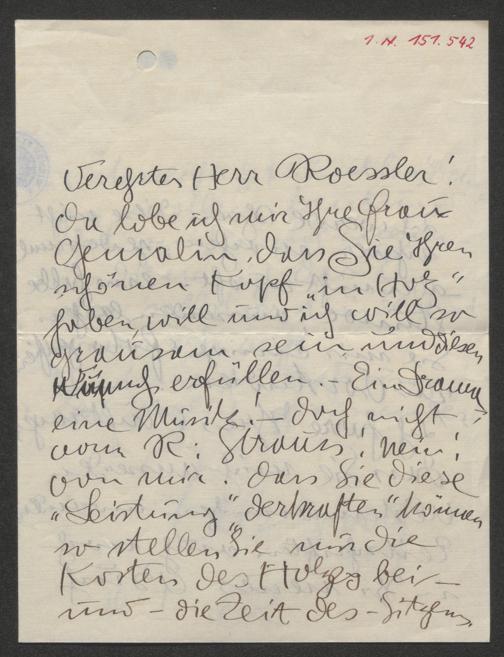 I. N. 151.542
Verehrter Herr Roessler!
da lobe ich mir Ihre Frau
Gemalin, dass Sie Ihren
schönen Kopf „in Holz"
haben will und ich will so
grausam sein und diesen
Wunsch erfüllen. – Ein Drama,
eine Musik! – doch nicht
vom R: Strauss, nein!
von mir. dass Sie diese
„Leistung" „derkraften" können
so stellen Sie mir die
Kosten des Holzes bei –
und – die Zeit des – Sitzens,